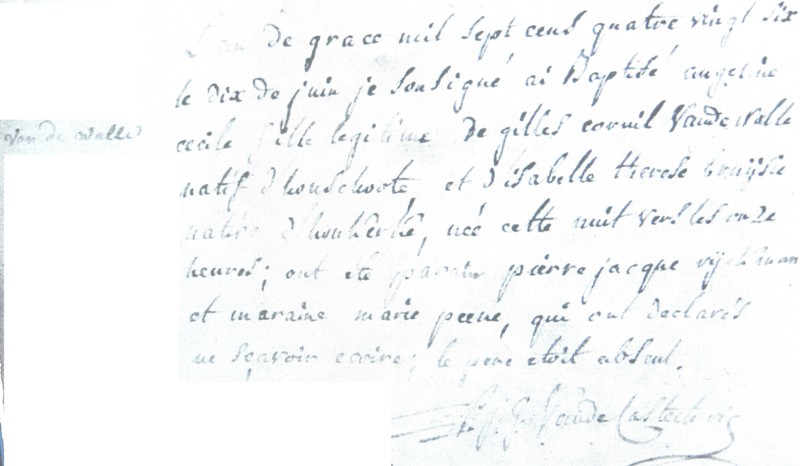 L'an de grace mil sept cens quatre vingt six
le dix de juin je sousigné ai Baptisé angeline
van de walle
cecile fille legitime de gilles cornil Vandewalle
natif d'honschoote et d'isabelle therese
native d'honkerke, née cette nuit vers les onze
heures; ont été parain pierre jacque
et maraine marie peene, qui ont declarés
ne sçavoir ecrire; le pere etoit absent.